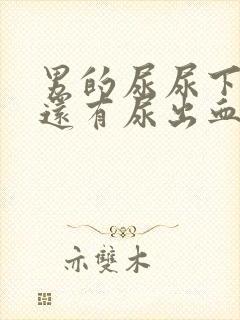 男的尿尿下
還有尿出血
亦雙木